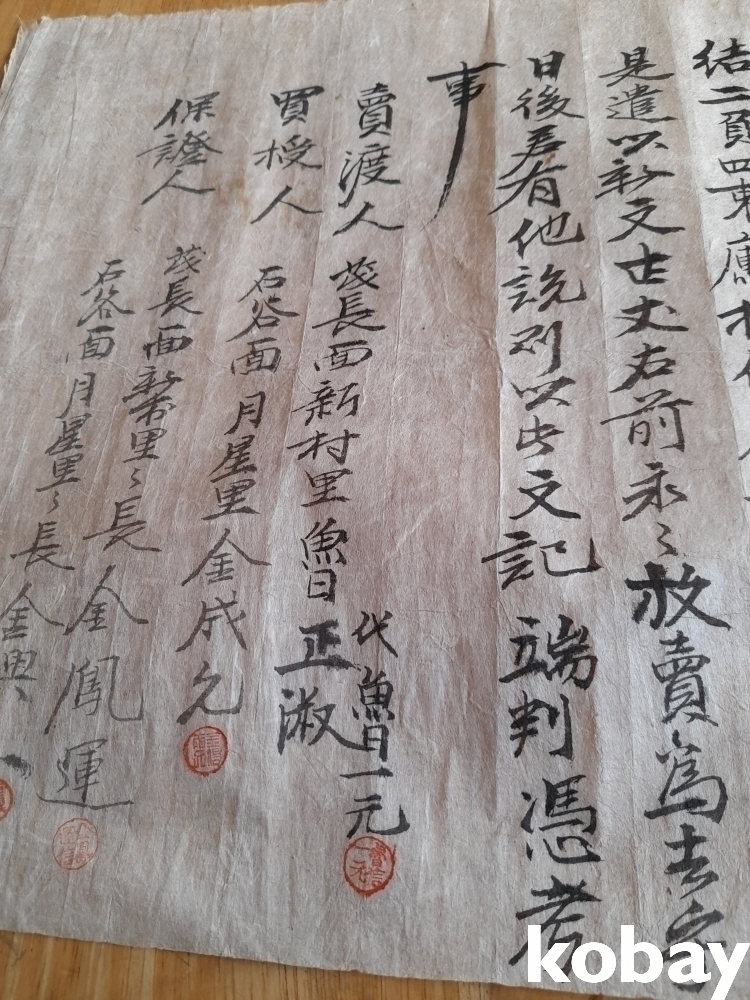 結二負四束
是遣以新文
右前永〻放賣爲去乎
日後若有他說則以此文記 端判憑考
事
賣渡人 茂長面新村里魯正淑
代魯一元
買授人 石谷面月星里金成允
保證人 茂長面新村里〻長金鳳運
石谷面月星里〻長金興
kobay